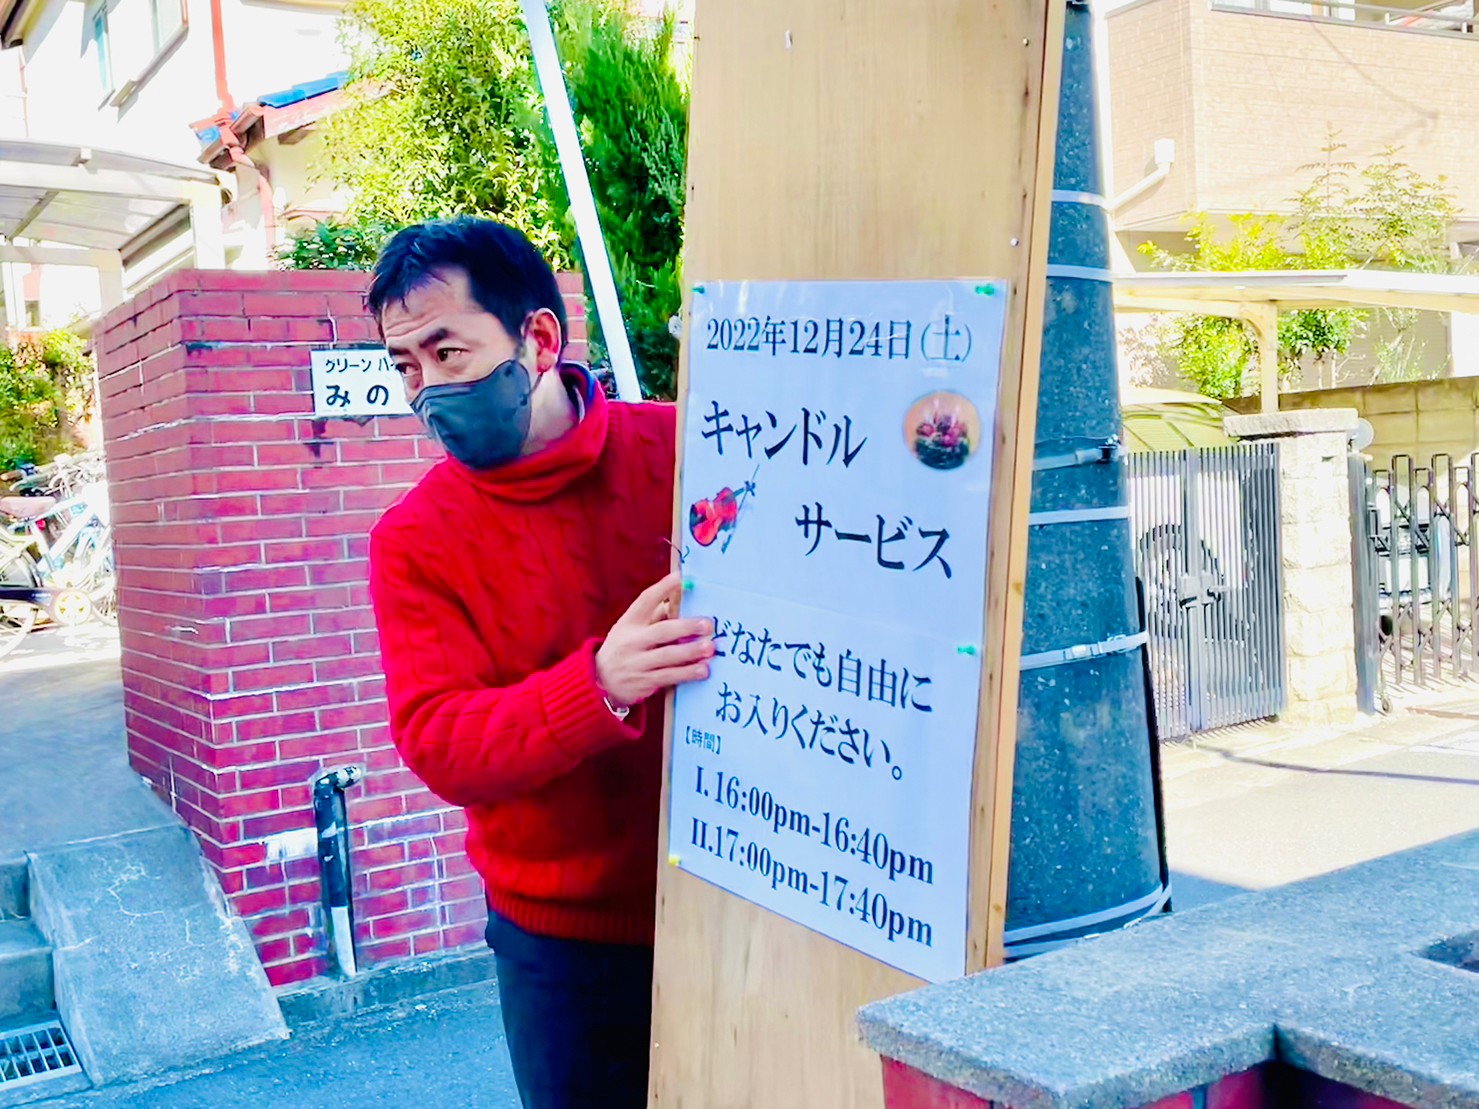 グリーン ハ
みの
2022年12月24日(土)
キャンドル
サービス
どなたでも自由に
お入りください。
【時間】
I.16:00pm-16:40pm
II.17:00pm-17:40pm